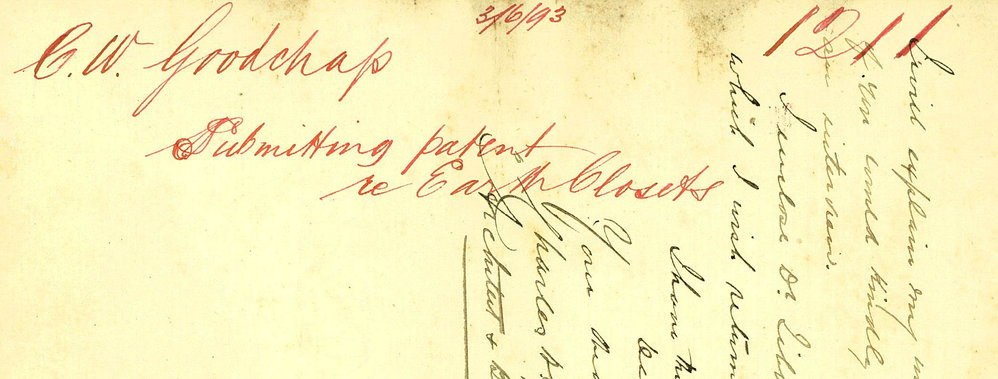 3/6/93
1211
C.W. Goodchap
Submitting patent
re Earth Closets
explain my
you would kindly
an interview.
I enclose Dr
which I wish
I have
Your
Charles
Architect &